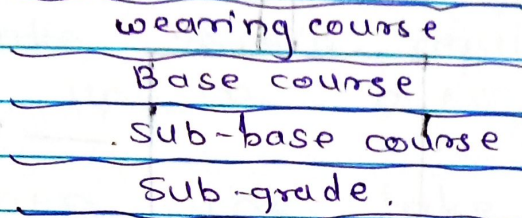 wearing course
Base course
sub-base course
sub-grade.